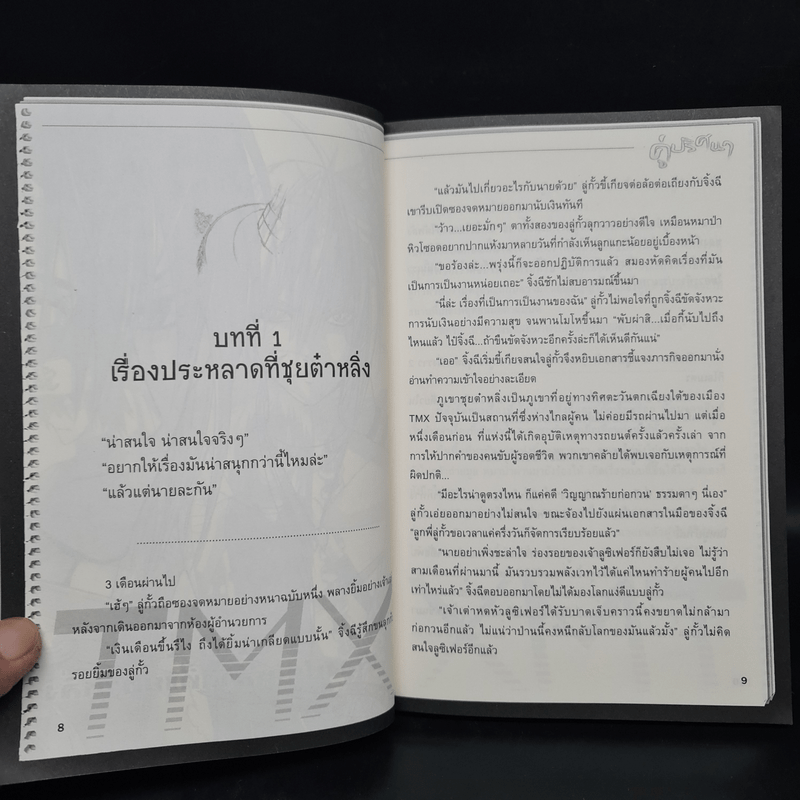 บทที่ 1
เรื่องประหลาดที่ชุยต๋าหลิ่ง
“น่าสนใจ น่าสนใจจริงๆ”
“อยากให้เรื่องมันน่าสนุกกว่านี้ไหมล่ะ”
“แล้วแต่นายละกัน”
3 เดือนผ่านไป
“เฮ้ๆ” ลู่กั้วถือซองจดหมายอย่างหนาฉบับหนึ่ง พลางยิ้มอย่างเจ้าเล่ห์
หลังจากเดินออกมาจากห้องผู้อำนวยการ
“เงินเดือนขึ้นรึไง ถึงได้ยิ้มน่าเกลียดแบบนั้น” จิ้งฉีรู้สึกขนลุกกับ
รอยยิ้มของลู่กั้ว
TMX
8
คู่ปริศนา
“แล้วมันไปเกี่ยวอะไรกับนายด้วย” ลู่กั้วขี้เกียจต่อล้อต่อเถียงกับจิ้งฉี
เขารีบเปิดซองจดหมายออกมานับเงินทันที
“ว้าว...เยอะมั่กๆ” ตาทั้งสองของลู่กั้วลุกวาวอย่างดีใจ เหมือนหมาป่า
หิวโซอดอยากปากแห้งมาหลายวันที่กำลังเห็นลูกแกะน้อยอยู่เบื้องหน้า
“ขอร้องล่ะ...พรุ่งนี้ก็จะออกปฏิบัติการแล้ว สมองหัดคิดเรื่องที่มัน
เป็นการเป็นงานหน่อยเถอะ” จิ้งฉีชักไม่สบอารมณ์ขึ้นมา
“นี่ล่ะ เรื่องที่เป็นการเป็นงานของฉัน” ลู่กั้วไม่พอใจที่ถูกจิ้งฉีขัดจังหวะ
การนับเงินอย่างมีความสุข จนพานโมโหขึ้นมา “พับผ่าสิ...เมื่อกี้นับไปถึง
ไหนแล้ว ไป๋จิ้งฉี...ถ้าขืนขัดจังหวะอีกครั้งล่ะก็ได้เห็นดีกันแน่”
“เออ” จิ้งฉีเริ่มขี้เกียจสนใจลู่กั้วจึงหยิบเอกสารชี้แจงภารกิจออกมานั่ง
อ่านทำความเข้าใจอย่างละเอียด
ภูเขาชุยต๋าหลิ่งเป็นภูเขาที่อยู่ทางทิศตะวันตกเฉียงใต้ของเมือง
TMX ปัจจุบันเป็นสถานที่ซึ่งห่างไกลผู้คน ไม่ค่อยมีรถผ่านไปมา แต่เมื่อ
หนึ่งเดือนก่อน ที่แห่งนี้ได้เกิดอุบัติเหตุทางรถยนต์ครั้งแล้วครั้งเล่า จาก
การให้ปากคำของคนขับผู้รอดชีวิต พวกเขาคล้ายได้พบเจอกับเหตุการณ์ที่
ผิดปกติ...
“มีอะไรน่าดูตรงไหน ก็แค่คดี ‘วิญญาณร้ายก่อกวน’ ธรรมดาๆ นี่เอง”
ลู่กั้วเอ่ยออกมาอย่างไม่สนใจ ขณะจ้องไปยังแผ่นเอกสารในมือของจิ้งฉี
“ลูกพี่ลู่กั้วขอเวลาแค่ครึ่งวันก็จัดการเรียบร้อยแล้ว”
“นายอย่าเพิ่งชะล่าใจ ร่องรอยของเจ้าลูซิเฟอร์ก็ยังสืบไม่เจอ ไม่รู้ว่า
สามเดือนที่ผ่านมานี้ มันรวบรวมพลังเวทไว้ได้แค่ไหนทำร้ายผู้คนไปอีก
เท่าไหร่แล้ว” จิ้งฉีตอบออกมาโดยไม่ได้มองโลกแง่ดีแบบลู่กั้ว
“เจ้าเต่าหดหัวลูซิเฟอร์ได้รับบาดเจ็บคราวนี้คงขยาดไม่กล้ามา
ก่อกวนอีกแล้ว ไม่แน่ว่าป่านนี้คงหนีกลับโลกของมันแล้วมั้ง” ลู่กั้วไม่คิด
สนใจลูซิเฟอร์อีกแล้ว
9